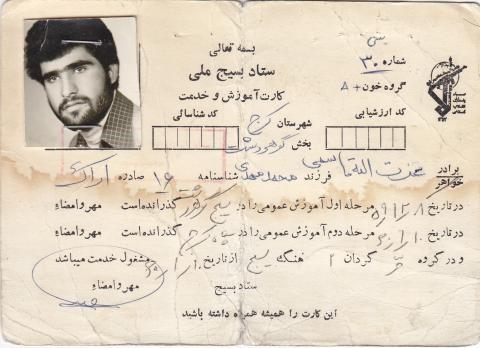 بسمه تعالی
ستاد بسیج ملی
کارت آموزش و خدمت
شماره ۳۰
گروه خون + A
کد ارزشیابی
کد شناسائی
شهرستان کرج
بخش گوهردشت
برادر
خواهر
عزت الله قاسمی فرزند محمدمهدی شناسنامه ۱۶ صادره اراک
در تاریخ مرحله اول آموزش عمومی را در بسیج گذرانده است مهر و امضاء
در تاریخ مرحله دوم آموزش عمومی را در سپاه کرج گذرانده است مهر و امضاء
و در گروه حر گردان ۲ هنگ بسیج از تاریخ مشغول خدمت میباشد
ستاد بسیج مهر و امضاء
این کارت را همیشه همراه داشته باشید